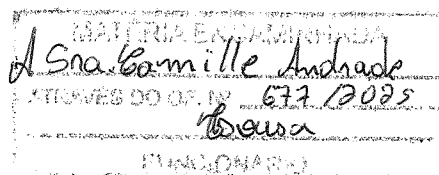 MATÉRIA ENCAMINHADA
A Sra. Camille Andrade
ATRAVÉS DO OF. Nº 677/2025
Sousa
FUNCIONÁRIO